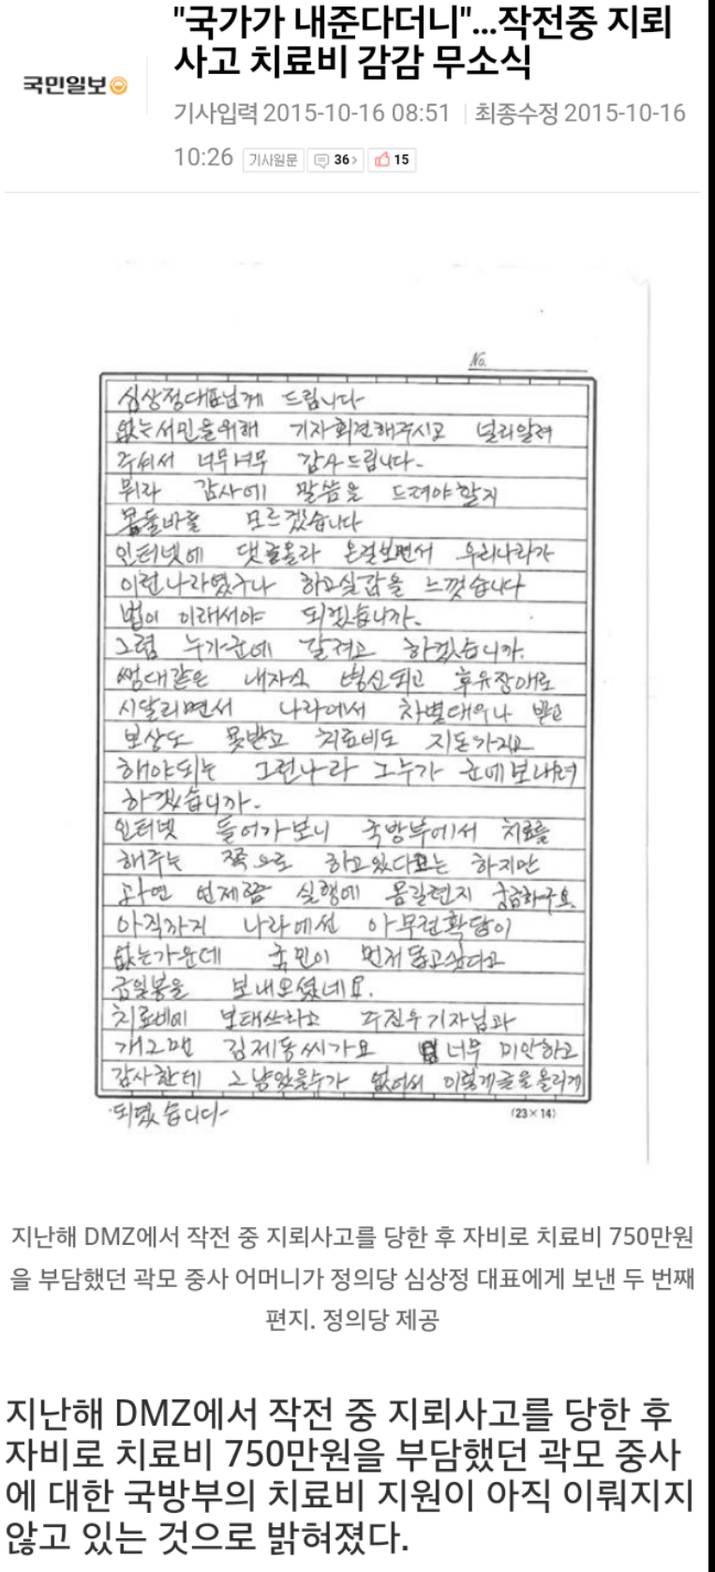 "국가가 내준다더니"...작전중 지뢰
사고 치료비 감감 무소식
국민일보
기사입력 2015-10-16 08:51 최종수정 2015-10-16
10:26 기사원문 36 15
No.
심상정대표님께 드립니다
없는서민을위해 기자회견해주시고 널리알려
주셔서 너무너무 감사드립니다.
뭐라 감사에 말씀을 드려야할지
몸둘바를 모르겠습니다
인터넷에 댓글올라 온걸보면서 우리나라가
이런나라였구나 하고실감을 느꼈습니다
법이 이래서야 되겠습니까.
그럼 누가군에 갈려고 하겠습니까.
생대같은 내자식 병신되고 후유장애로
시달리면서 나라에서 차별대우나 받고
보상도 못받고 치료비도 지돈가지고
해야되는 그런나라 그누가 군에보내려
하겠습니까.
인터넷 들어가보니 국방부에서 치료를
해주는 쪽으로 하고있다고는 하지만
과연 언제쯤 실행에 옴길런지 궁금하구요.
아직까지 나라에선 아무런확답이
없는가운데 국민이 먼저돕고싶다고
금일봉을 보내오셨네요.
치료비에 보태쓰라고 주진우기자님과
개그맨 김제동씨가요 너무 미안하고
감사한데 그냥있을수가 없어서 이렇게글을올리게
되였습니다
(23×14)
지난해 DMZ에서 작전 중 지뢰사고를 당한 후 자비로 치료비 750만원
을 부담했던 곽모 중사 어머니가 정의당 심상정 대표에게 보낸 두 번째
편지. 정의당 제공
지난해 DMZ에서 작전 중 지뢰사고를 당한 후
자비로 치료비 750만원을 부담했던 곽모 중사
에 대한 국방부의 치료비 지원이 아직 이뤄지지
않고 있는 것으로 밝혀졌다.